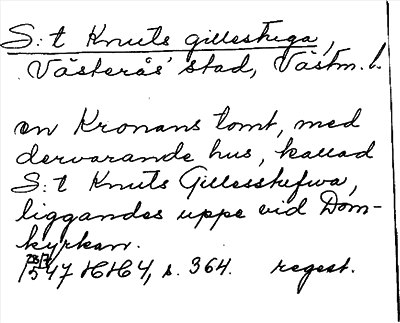 S:t Knuts gillestuga,
Västerås' stad, Västm. l.
en Kronans tomt, med
dervarande hus, kallad
S:t Knuts Gillesstufwa,
liggandes uppe vid Dom-
kyrkan.
1547 HH 4, s. 364. regest.